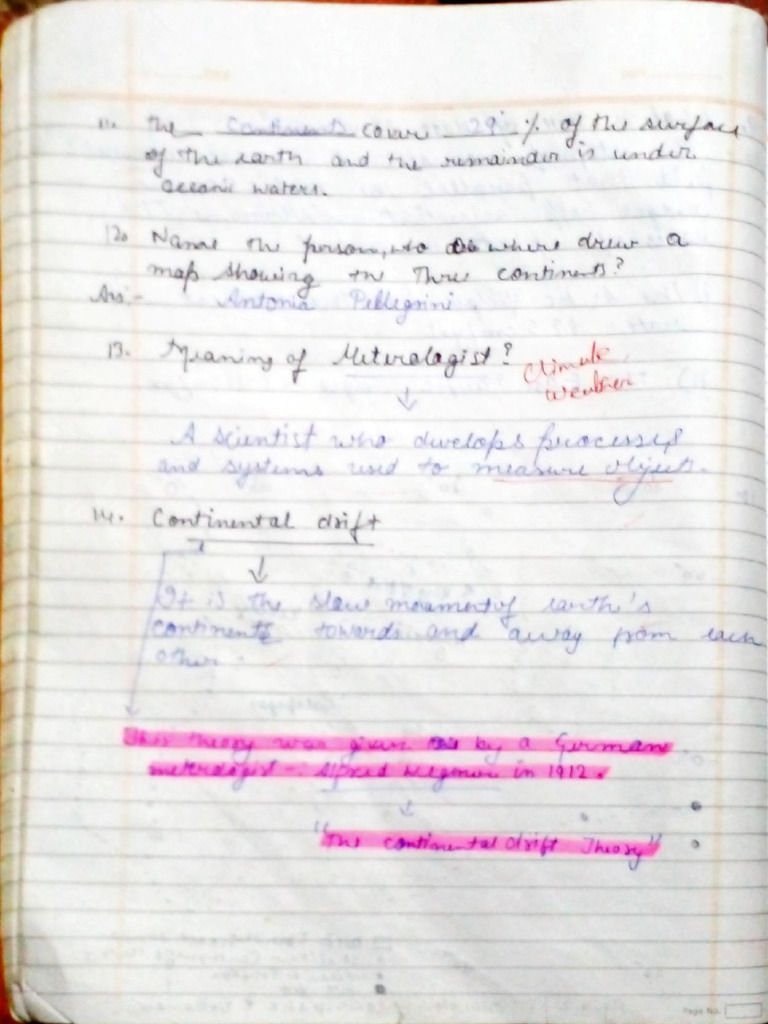 11. The continents cover 29 % of the surface
of the earth and the remainder is under
oceanic waters.
12. Name the person, who where drew a
map showing the Three continents?
Ans:- Antonia Pellegrini.
13. Meaning of Meterologist? Climate,
weather
↓
A scientist who dwelops processes
and systems used to measure objects.
14. Continental drift
↓
It is the slow movement of earth's
continents towards and away from each
other.
This theory was given by a German
meterologist - Alfred Wegner in 1912.
↓
"The continental drift Theory"
Page No.